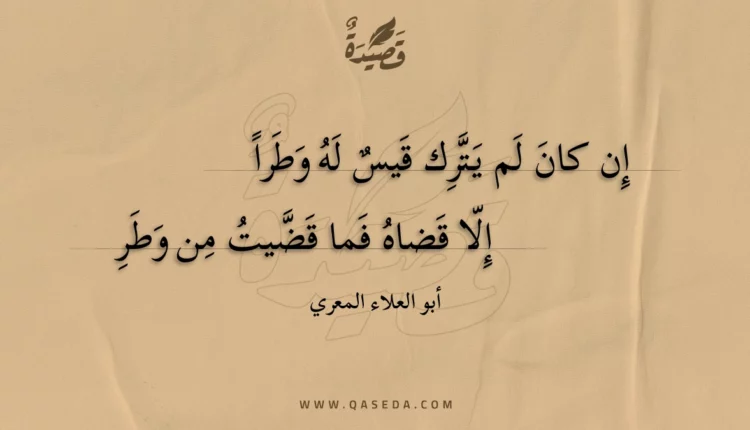 قَصِيدَةٌ
إِن كانَ لَم يَتَّرِك قَيسٌ لَهُ وَطَرَاً
إِلّا قَضاهُ فَما قَضَّيتُ مِن وَطَرِ
أبو العلاء المعري
WWW.QASEDA.COM